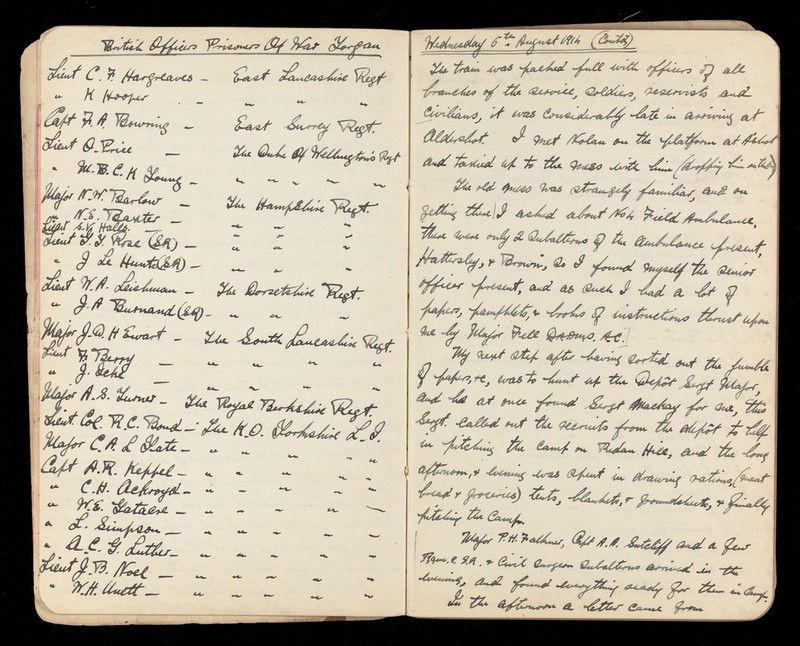 British Officers Prisoners Of War Torgau
Lieut C. F. Hargreaves - East Lancashire Regt
" K Hooper - " " "
Capt F. A. Bowring - East Surrey Regt.
Lieut O. Price - The Duke Of Wellington's Regt
" M. B. C. K Young - " " " " "
Major N. W. Barlow - The Hampshire Regt.
" N. E. Baxter - " " "
Lieut S. V. Halls - " " "
Lieut T. Y. Rose (SR) - " " "
" J Le Hunte (SR) - " " "
Lieut W. A. Leishman - The Dorsetshire Regt.
" J. A Burnand (SR) - " " "
Major J. Q. H Ewart - The South Lancashire Regt.
Lieut F. Berry - " " " "
" J. - " " " "
Major A. S. Turner - The Royal Berkshire Regt.
Lieut Col. R. C. Bond - The K. O. Yorkshire L. I.
Major C. A. L Yate - " " " "
Capt A. R. Keppel - " " " "
" C. H. Ackroyd - " " " "
" W. E. Gatacre - " " " "
" L. Simpson - " " " "
" A. C. G. Luther - " " " "
Lieut J. B. Noel - " " " "
" W. H. Unett - " " " "
Wednesday 5th August 1914 (Contd)
The train was packed full with officers of all
branches of the service, soldiers, reservists and
civilians, it was considerably late in arriving at
Aldershot. I met Nolan on the platform at Ashot
and taxied up to the mess with him (dropping him
The old mess was strangely familiar, and on
getting there I asked about No 4 Field Ambulance,
there were only 2 subalterns of the ambulance present,
Hattersley, & Brown, so I found myself the senior
officer present, and as such I had a lot of
papers, pamphlets, & books of instructions thrust upon
me by Major Fell D.A.D.M.S. A.C.
My next step after having sorted out the jumble
of papers, &c, was to hunt up the Depôt Sergt Major,
and he at once found Sergt Mackay for me, this
Sergt. called out the recruits from the depôt to help
in pitching the camp on Redan Hill, and the long
afternoon, & evening was spent in drawing rations, (meat
bread & groceries) tents, blankets, & groundsheets, & finally
pitching the Camp.
Major P. H. Falkner, Capt A. A. Sutcliff and a few
R.A.M.C. S.R. & Civil Surgeon Subalterns arrived in the
evening, and found everything ready for them in Camp.
In the afternoon a letter came from